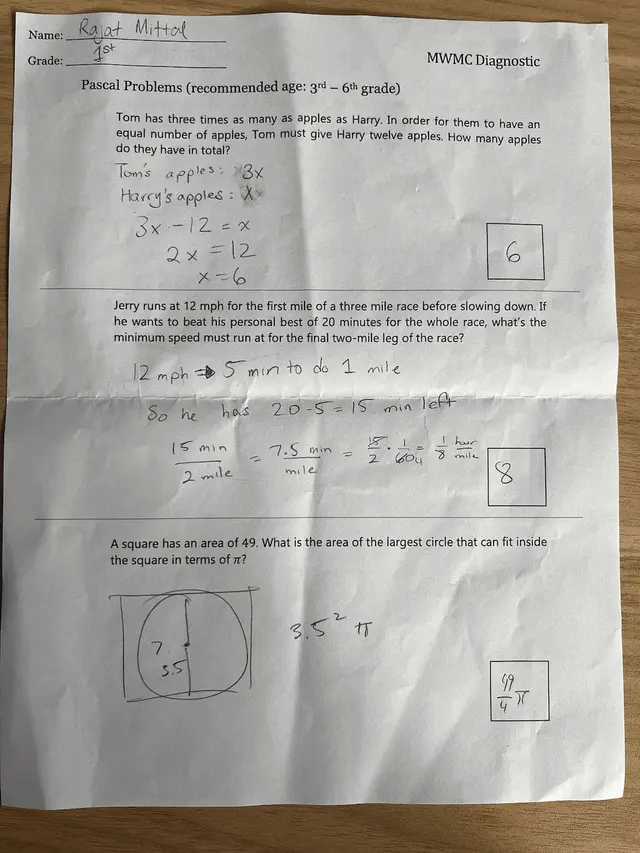 Name: Rajat Mittal
Grade: 1st
MWMC Diagnostic
Pascal Problems (recommended age: 3rd – 6th grade)
Tom has three times as many as apples as Harry. In order for them to have an
equal number of apples, Tom must give Harry twelve apples. How many apples
do they have in total?
Tom's apples: 3x
Harry's apples: x
3x - 12 = x
2x = 12
x = 6
6
Jerry runs at 12 mph for the first mile of a three mile race before slowing down. If
he wants to beat his personal best of 20 minutes for the whole race, what's the
minimum speed must run at for the final two-mile leg of the race?
12 mph ⇒ 5 min to do 1 mile
So he has 20-5 = 15 min left
15 min / 2 mile = 7.5 min / mile = 15/2 · 1/60 4 = 1/8 hour/mile
8
A square has an area of 49. What is the area of the largest circle that can fit inside
the square in terms of π?
7
3.5
3.5² π
49/4 π